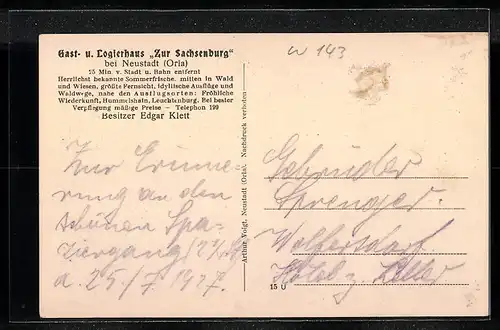 Gast- u. Logierhaus „Zur Sachsenburg"
bei Neustadt (Orla)
15 Min. v. Stadt u. Bahn entfernt
Herrlichst bekannte Sommerfrische, mitten in Wald
und Wiesen, größte Fernsicht, idyllische Ausflüge und
Waldwege, nahe den Ausflugsorten: Fröhliche
Wiederkunft, Hummelshain, Leuchtenburg. Bei bester
Verpflegung mäßige Preise — Telephon 199
Besitzer Edgar Klett
Zur Erinne-
rung an den
schönen Spa-
ziergang
d. 25./7 1927.
Arthur Voigt, Neustadt (Orla). Nachdruck verboten
w 143
Gebrüder
Sprenger.
Wolfersdorf
Hotel z.
15 U